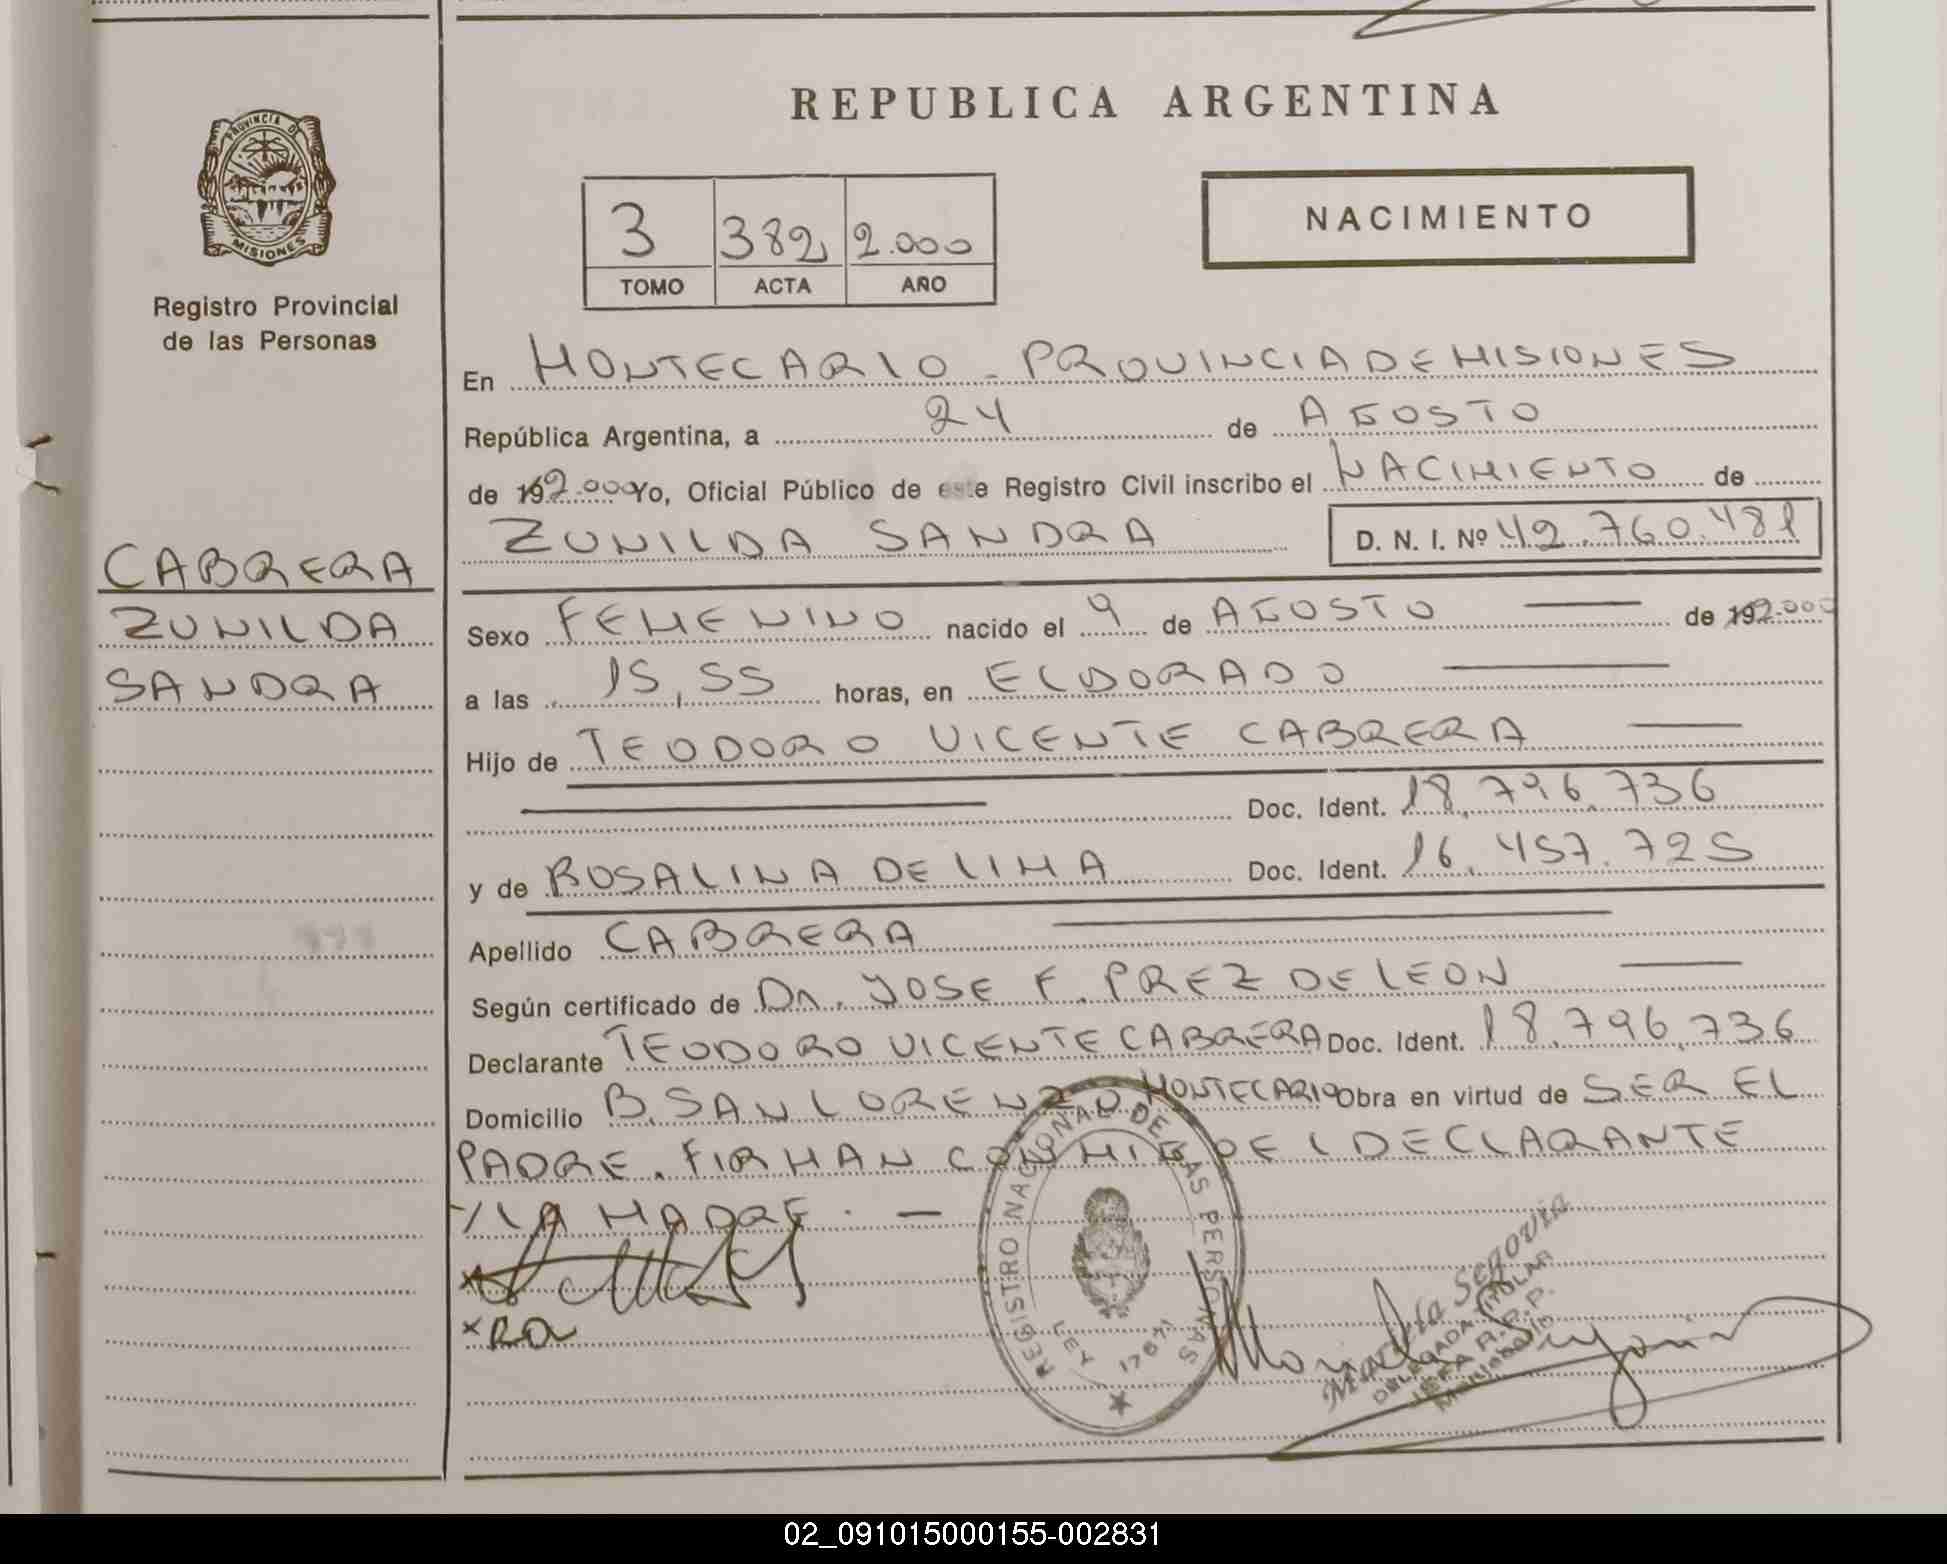 REPUBLICA ARGENTINA
PROVINCIA DE
MISIONES
Registro Provincial
de las Personas
3 382 2.000
TOMO ACTA AÑO
NACIMIENTO
En MONTECARLO - PROVINCIA DE MISIONES
República Argentina, a 24 de AGOSTO
de 192.000 Yo, Oficial Público de este Registro Civil inscribo el NACIMIENTO de
ZUNILDA SANDRA D. N. I. Nº 42.760.481
CABRERA
ZUNILDA
SANDRA
Sexo FEMENINO nacido el 9 de AGOSTO de 192.000
a las 15,55 horas, en ELDORADO
Hijo de TEODORO VICENTE CABRERA
Doc. Ident. 18.796.736
y de ROSALINA DE LIMA Doc. Ident. 16.457.725
Apellido CABRERA
Según certificado de Dr. JOSE F. PREZ DE LEON
Declarante TEODORO VICENTE CABRERA Doc. Ident. 18.796.736
Domicilio B. SAN LORENZO MONTECARLO Obra en virtud de SER EL
PADRE. FIRMAN CONMIGO EL DECLARANTE
Y LA MADRE. —
REGISTRO NACIONAL DE LAS PERSONAS
LEY 17671
x RDL
Mariela Segovia
DELEGADA TITULAR
JEFA R.P.P.
02_091015000155-002831